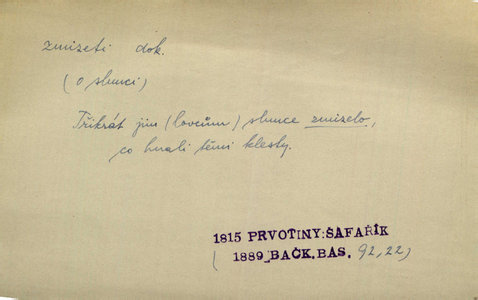 zmizeti dok.
(o slunci)
Třikrát jim (lovcům) slunce zmizelo,
co hnali těmi klesty.
1815 PRVOTINY:ŠAFAŘÍK
( 1889_BAČK.BAS. 92,22)